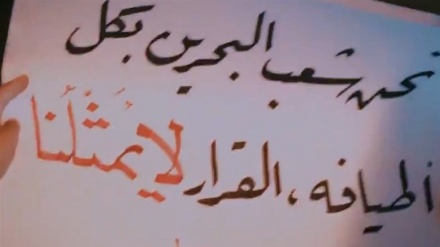 نحن شعب البحرين بكل
أطيافه، القرار لا يُمَثّلُنا